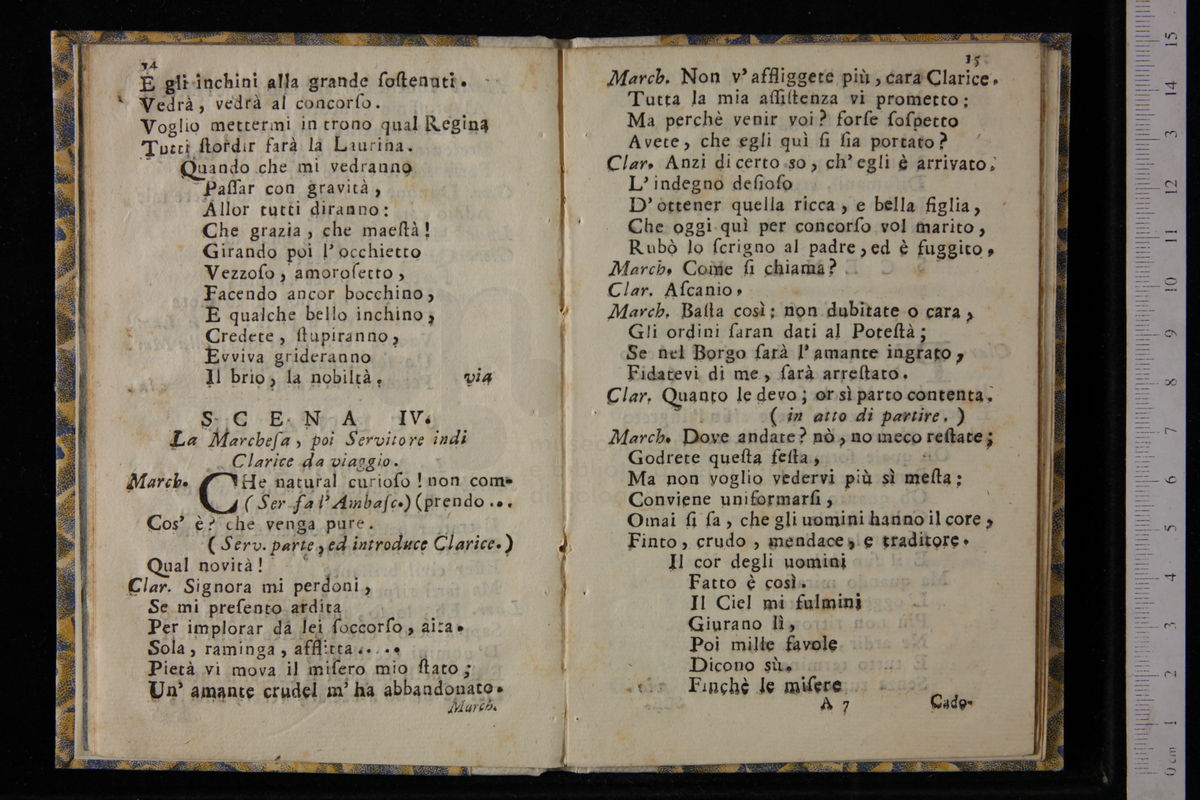 14
E gli inchini alla grande ſoſtenuti.
Vedrà, vedrà al concorſo.
Voglio mettermi in trono qual Regina
Tutti ſtordir farà la Laurina.
Quando che mi vedranno
Paſſar con gravità,
Allor tutti diranno:
Che grazia, che maeſtà!
Girando poi l'occhietto
Vezzoſo, amoroſetto,
Facendo ancor bocchino,
E qualche bello inchino,
Credete, ſtupiranno,
Evviva grideranno
Il brio, la nobiltà. via
SCENA IV.
La Marcheſa, poi Servitore indi
Clarice da viaggio.
March. CHe natural curioſo! non com-
(Ser. fa l'Ambaſc.) (prendo...
Cos' è? che venga pure.
(Serv. parte, ed introduce Clarice.)
Qual novità!
Clar. Signora mi perdoni,
Se mi preſento ardita
Per implorar da lei ſoccorſo, aita.
Sola, raminga, afflitta.....
Pietà vi mova il miſero mio ſtato;
Un' amante crudel m'ha abbandonato.
March.
15
March. Non v'affliggete più, cara Clarice.
Tutta la mia aſſiſtenza vi prometto:
Ma perchè venir voi? forſe ſoſpetto
Avete, che egli quì ſi ſia portato?
Clar. Anzi di certo so, ch'egli è arrivato.
L'indegno deſioſo
D'ottener quella ricca, e bella figlia,
Che oggi quì per concorſo vol marito,
Rubò lo ſcrigno al padre, ed è fuggito.
March. Come ſi chiama?
Clar. Aſcanio.
March. Baſta così: non dubitate o cara,
Gli ordini ſaran dati al Poteſtà;
Se nel Borgo ſarà l'amante ingrato,
Fidatevi di me, ſarà arreſtato.
Clar. Quanto le devo; or sì parto contenta.
(in atto di partire.)
March. Dove andate? nò, no meco reſtate;
Godrete queſta feſta,
Ma non voglio vedervi più sì meſta:
Conviene uniformarſi,
Omai ſi ſa, che gli uomini hanno il core,
Finto, crudo, mendace, e traditore.
Il cor degli uomini
Fatto è così.
Il Ciel mi fulmini
Giurano lì,
Poi mille favole
Dicono sù.
Finchè le miſere
A 7 Cado-